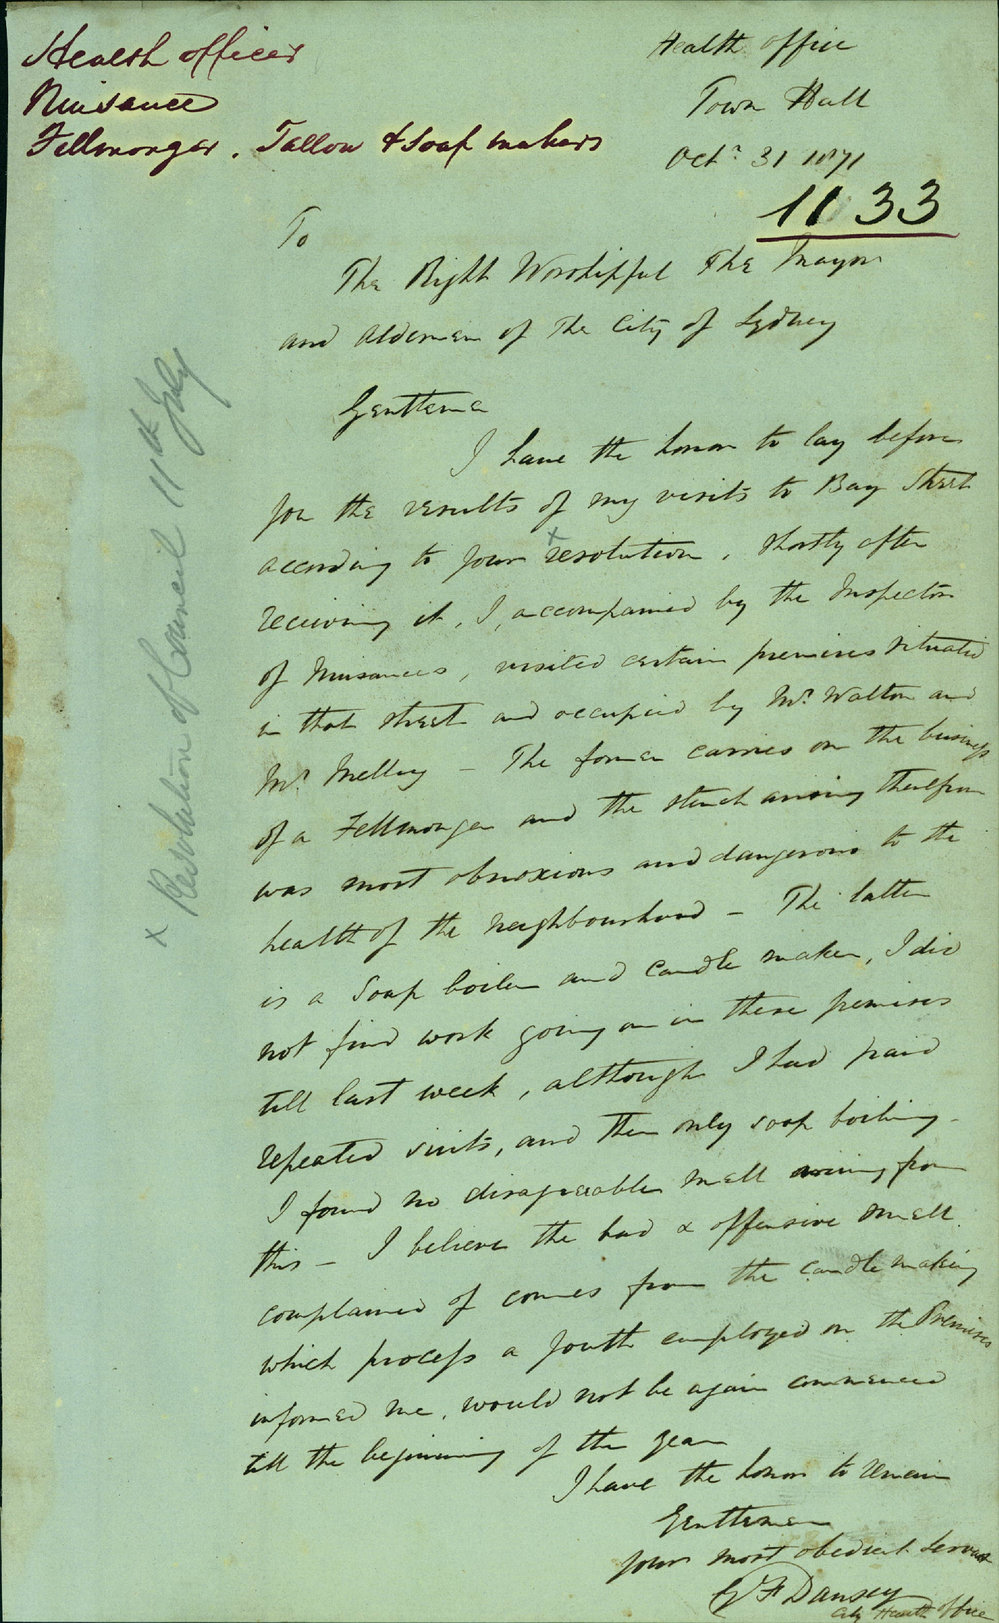 Health officer
Nuisance
Fellmonger. Tallow & Soap makers
Health office
Town Hall
Octr 31 1871
1133
To
The Right Worshipful The Mayor
and Aldermen of The City of Sydney
Gentlemen
I have the honor to lay before
you the results of my visits to Bay Street
according to your x resolution, shortly after
receiving it, I, accompanied by the Inspector
of Nuisances, visited certain premises situated
in that street and occupied by Mr. Walton and
Mr. – The former carries on the business
of a Fellmonger and the stench arising therefrom
was most obnoxious and dangerous to the
health of the neighbourhood – The latter
is a Soap boiler and candle maker, I did
not find work going on in these premises
till last week, although I had paid
repeated visits, and then only soap boiling –
I found no disagreeable smell arising from
this – I believe the bad & offensive smell
complained of comes from the candle making
which process a youth employed on the Premises
informed me, would not be again commenced
till the beginning of the year
I have the honor to remain
Gentlemen
your most obedient Servant
G F Dansey
City Health Officer
x Resolution of Council 11th July